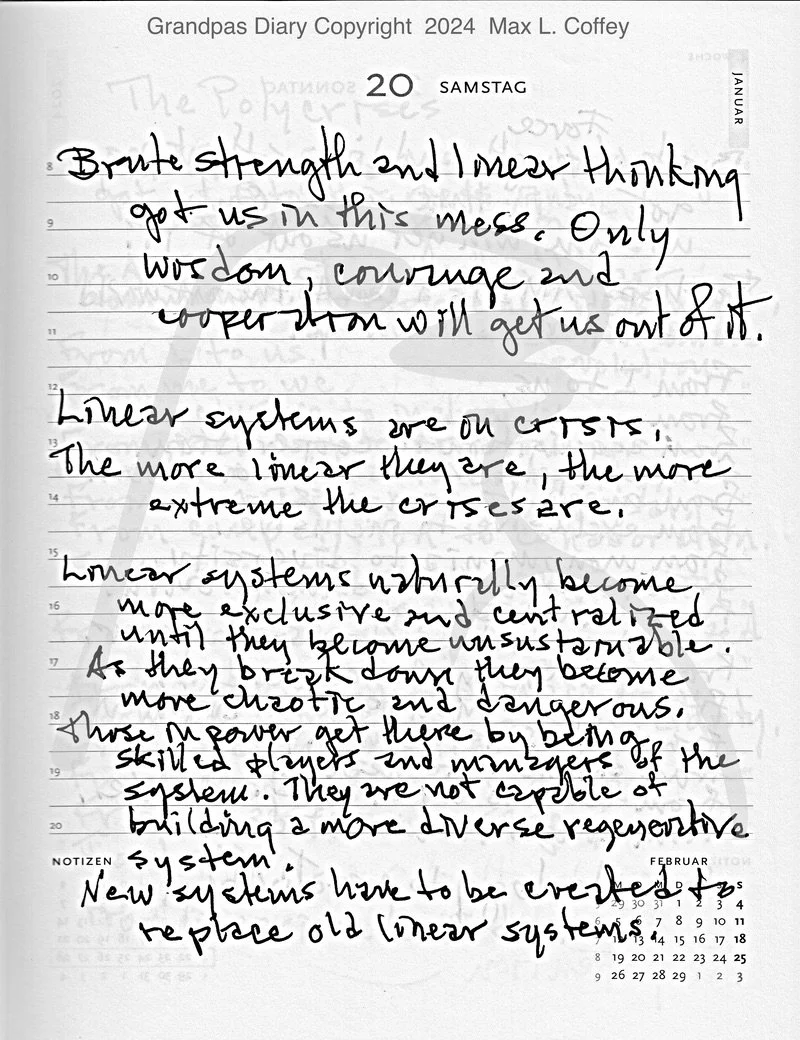 Grandpas Diary Copyright 2024 Max L. Coffey
20 SAMSTAG
JANUAR
The Polycrises
Force
8 Brute strength and linear thinking
9 got us in this mess. Only
10 wisdom, courage and
11 cooperation will get us out of it.
12
Linear systems are in crisis.
13
The more linear they are, the more
14 extreme the crises are.
15
Linear systems naturally become
16 more exclusive and centralized
until they become unsustainable.
17 As they break down they become
more chaotic and dangerous.
18 Those in power get there by being
skilled players and managers of the
19 system. They are not capable of
20 building a more diverse regenerative
NOTIZEN system. FEBRUAR
New systems have to be created to
replace old linear systems.
M D S
29 30 31 1 2 3 4
6 5 6 7 8 9 10 11
7 12 13 14 15 16 17 18
8 19 20 21 22 23 24 25
9 26 27 28 29 1 2 3